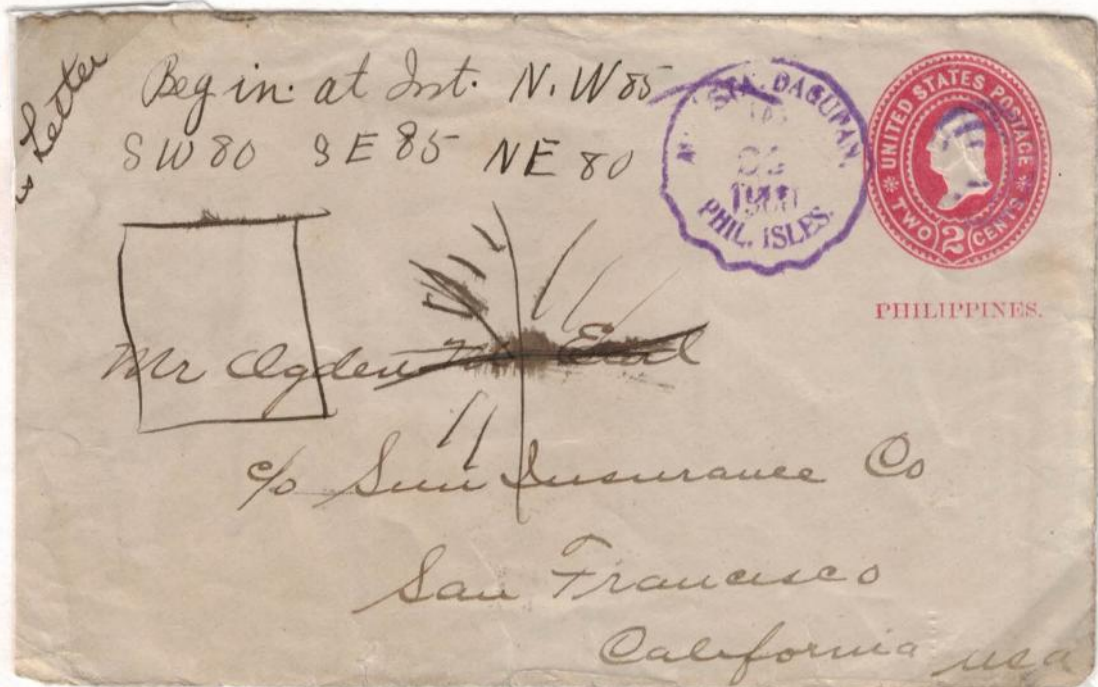 Letter
Begin. at Int. N.W 85
SW 80 SE 85 NE 80
STA. DAGUPAN.
PHIL. ISLES.
UNITED STATES POSTAGE
TWO 2 CENTS
PHILIPPINES.
Mr Ogden
c/o Sun Insurance Co
San Francisco
California USA